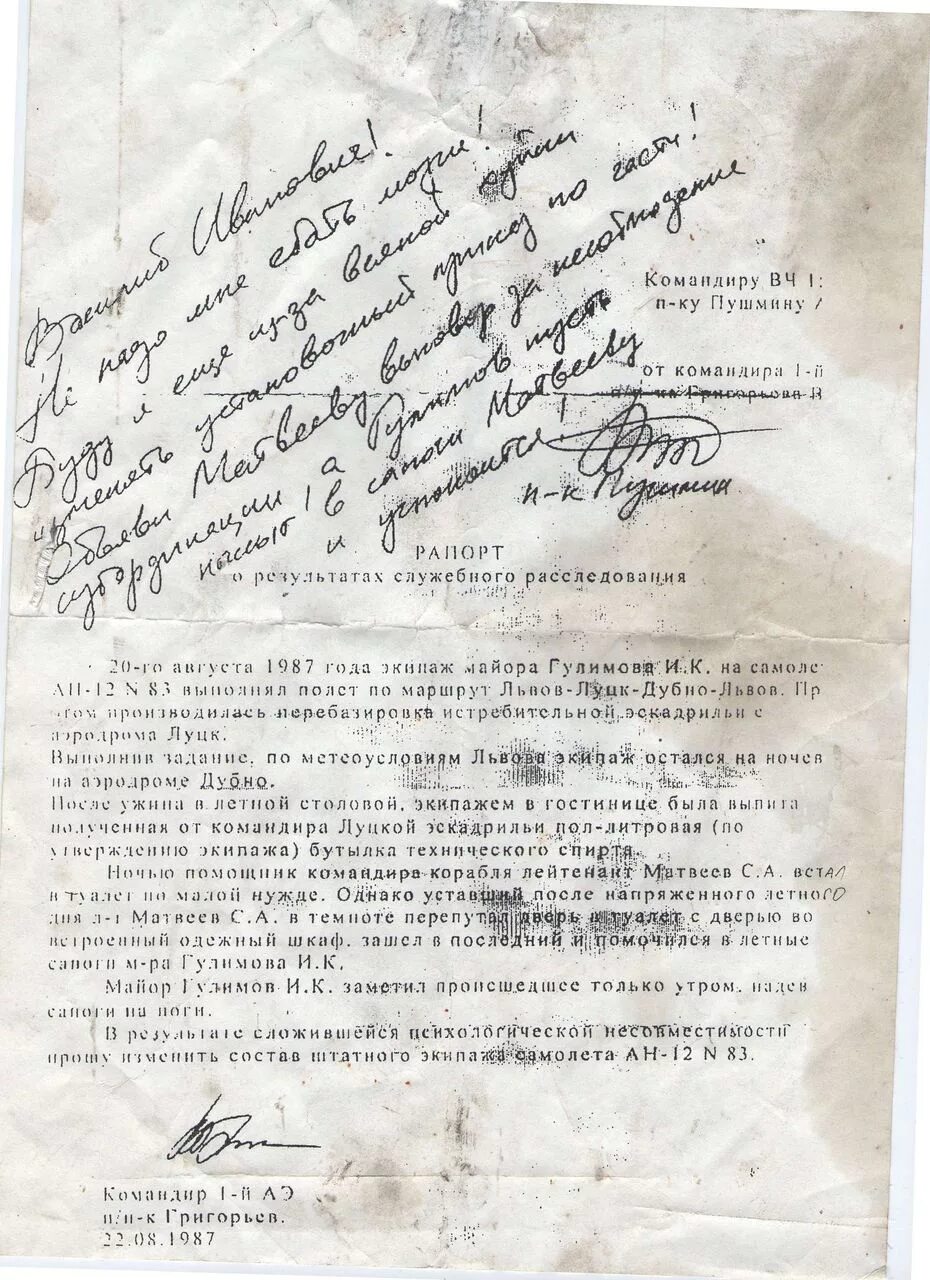 Василий Иванович!
Не надо мне ебать мозги!
Буду я еще из-за всякой хуйни
менять установочный приказ по части!
Объяви Матвееву выговор за несоблюдение
субординации, а Гулимов пусть
нассыт в сапоги Матвееву
и успокоится!
п-к Пушмин
Командиру ВЧ 1
п-ку Пушмину
от командира 1-й
п/п-ка Григорьева В
РАПОРТ
о результатах служебного расследования
20-го августа 1987 года экипаж майора Гулимова И.К. на самоле
АН-12 N 83 выполнял полет по маршрут Львов-Луцк-Дубно-Львов. Пр
этом производилась перебазировка истребительной эскадрильи с
аэродрома Луцк.
Выполнив задание, по метеоусловиям Львова экипаж остался на ночев
на аэродроме Дубно.
После ужина в летной столовой, экипажем в гостинице была выпита
полученная от командира Луцкой эскадрильи пол-литровая (по
утверждению экипажа) бутылка технического спирта.
Ночью помощник командира корабля лейтенант Матвеев С.А. встал
в туалет по малой нужде. Однако уставший после напряженного летного
дня л-т Матвеев С.А. в темноте перепутал дверь в туалет с дверью во
встроенный одежный шкаф, зашел в последний и помочился в летные
сапоги м-ра Гулимова И.К.
Майор Гулимов И.К. заметил происшедшее только утром, надев
сапоги на ноги.
В результате сложившейся психологической несовместимости
прошу изменить состав штатного экипажа самолета АН-12 N 83.
Командир 1-й АЭ
п/п-к Григорьев.
22.08.1987